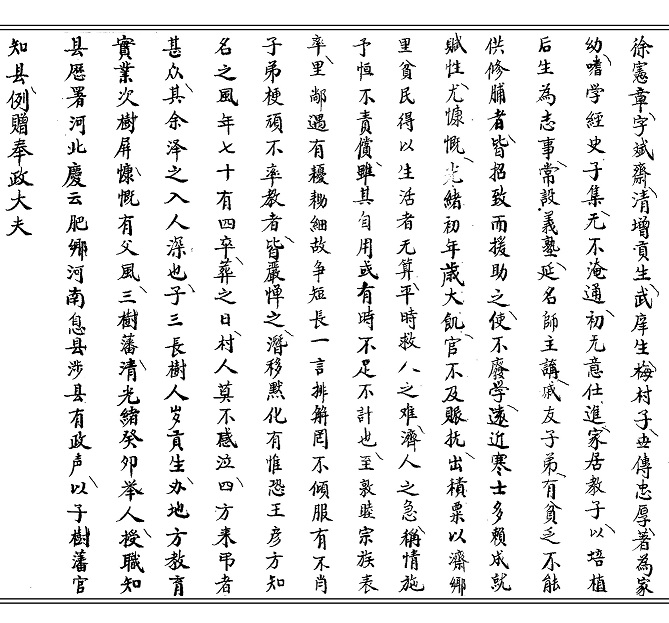 徐憲章字斌齋清增貢生武庠生梅村子世傳忠厚著為家
幼嗜学經史子集无不淹通初无意仕進家居教子以培植
后生為志事常設義塾延名師主講戚友子弟有貧乏不能
供修脯者皆招致而援助之使不廢學遠近寒士多賴成就
賦性尤慷慨光緒初年歲大飢官不及賑抗出積粟以濟鄉
里貧民得以生活者无算平時救人之难濟人之急稱情施
予恒不責償雖其自用或有時不足不計也至敦睦宗族表
率里鄰遇有耰耡細故争短長一言排解罔不傾服有不肖
子弟梗頑不率教者皆嚴惮之潛移默化有惟恐王彦方知
名之風年七十有四卒葬之日村人莫不感泣四方来弔者
甚众其余泽之入人深也子三長樹人岁贡生办地方教育
實業次樹屏慷慨有父風三樹藩清光緒癸卯举人授職知
县歷署河北慶云肥鄉河南息县涉县有政声以子樹藩官
知县例贈奉政大夫